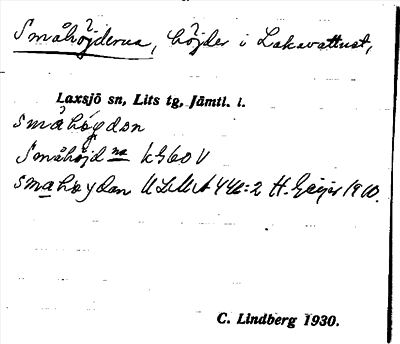 Småhöjderna, höjder i Lakavattnet,
Laxsjö sn, Lits tg, Jämtl. l.
småhöydon
Småhöjdna kg60V
småhöydan ULMA 446:2 H. Geijer 1910.
C. Lindberg 1930.